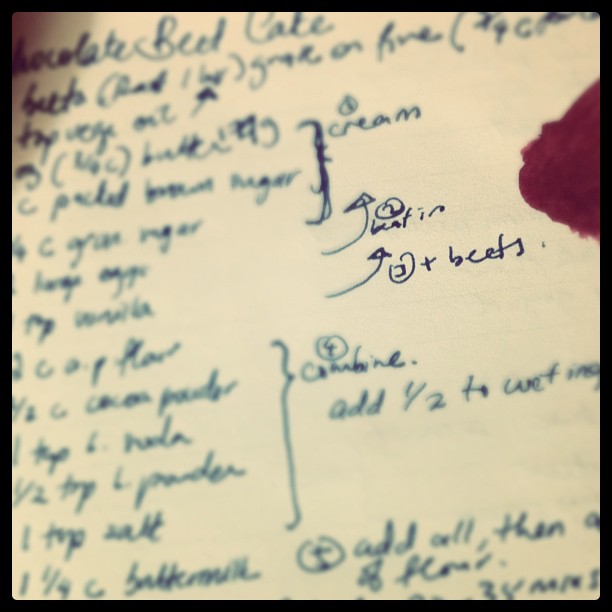 hocolate Beet Cake
beets (boil 1 hr) grate on fine (3/4 c
top vege oil
(3/4 c) butter
① cream
c packed brown sugar
② beat in
c gran. sugar
③ + beets.
large eggs
tsp vanilla
2 c a.p flour
④ combine.
c cocoa powder
add 1/2 to wet ing
1 tsp b. soda
1/2 tsp b. powder
1 tsp salt
⑤ add all, then
1 1/4 c buttermilk
of flour.